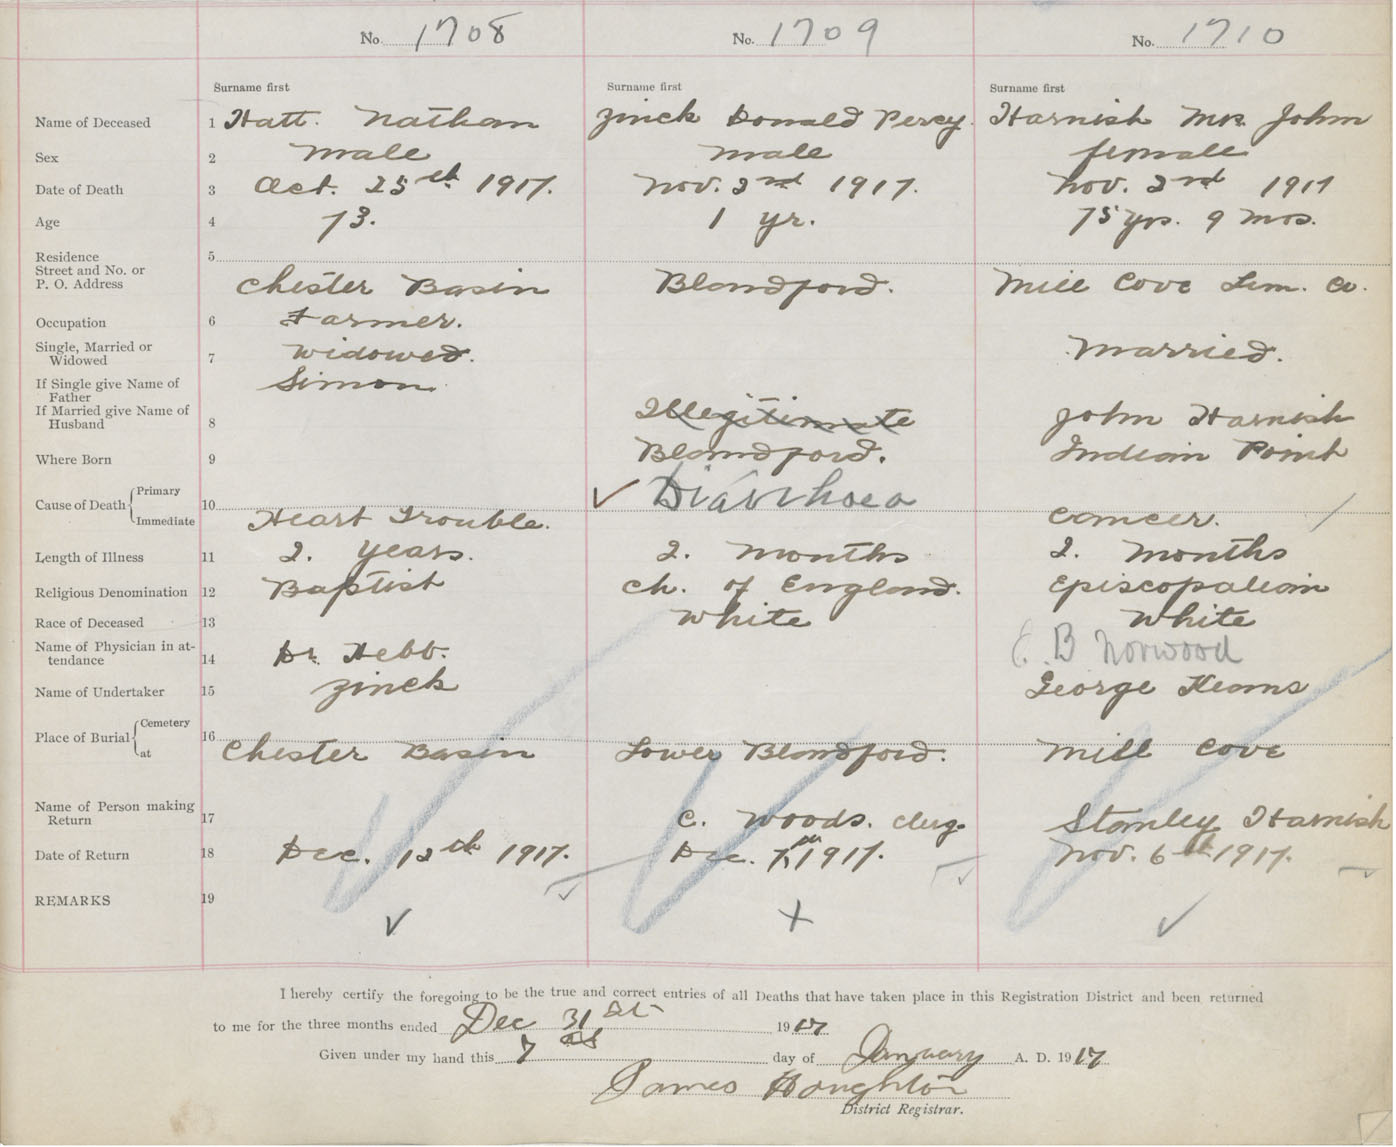 No. 1708 No. 1709 No. 1710
Surname first Surname first Surname first
Name of Deceased 1 Hatt. Nathan Zinck Donald Percy. Harnish Mrs. John
Sex 2 male male female
Date of Death 3 Oct. 25th 1917. Nov. 2nd 1917. Nov. 2nd 1917
Age 4 73. 1 yr. 75 yrs. 9 mos.
Residence 5
Street and No. or
P. O. Address Chester Basin Blandford. Mill Cove Lun. Co.
Occupation 6 Farmer.
Single, Married or
Widowed 7 Widowed. Married.
If Single give Name of
Father Simon
If Married give Name of
Husband 8 Illegitimate John Harnish
Where Born 9 Blandford. Indian Point
Cause of Death Primary 10 Diarrhoea
Immediate Heart Trouble. Cancer.
Length of Illness 11 2. years. 2. months 2. months
Religious Denomination 12 Baptist Ch. of England. Episcopalian
Race of Deceased 13 White White
Name of Physician in at-
tendance 14 Dr. Hebb. B Norwood
Name of Undertaker 15 Zinck George Keans
Place of Burial Cemetery 16
at Chester Basin Lower Blandford. Mill Cove
Name of Person making
Return 17 C. Woods. Clerg. Stanley Harnish
Date of Return 18 Dec. 12th 1917. Dec. 7th 1917. Nov. 6th 1917.
REMARKS 19
I hereby certify the foregoing to be the true and correct entries of all Deaths that have taken place in this Registration District and been returned
to me for the three months ended Dec 31st 1917
Given under my hand this 7 day of January A. D. 1917
James Houghton
District Registrar.